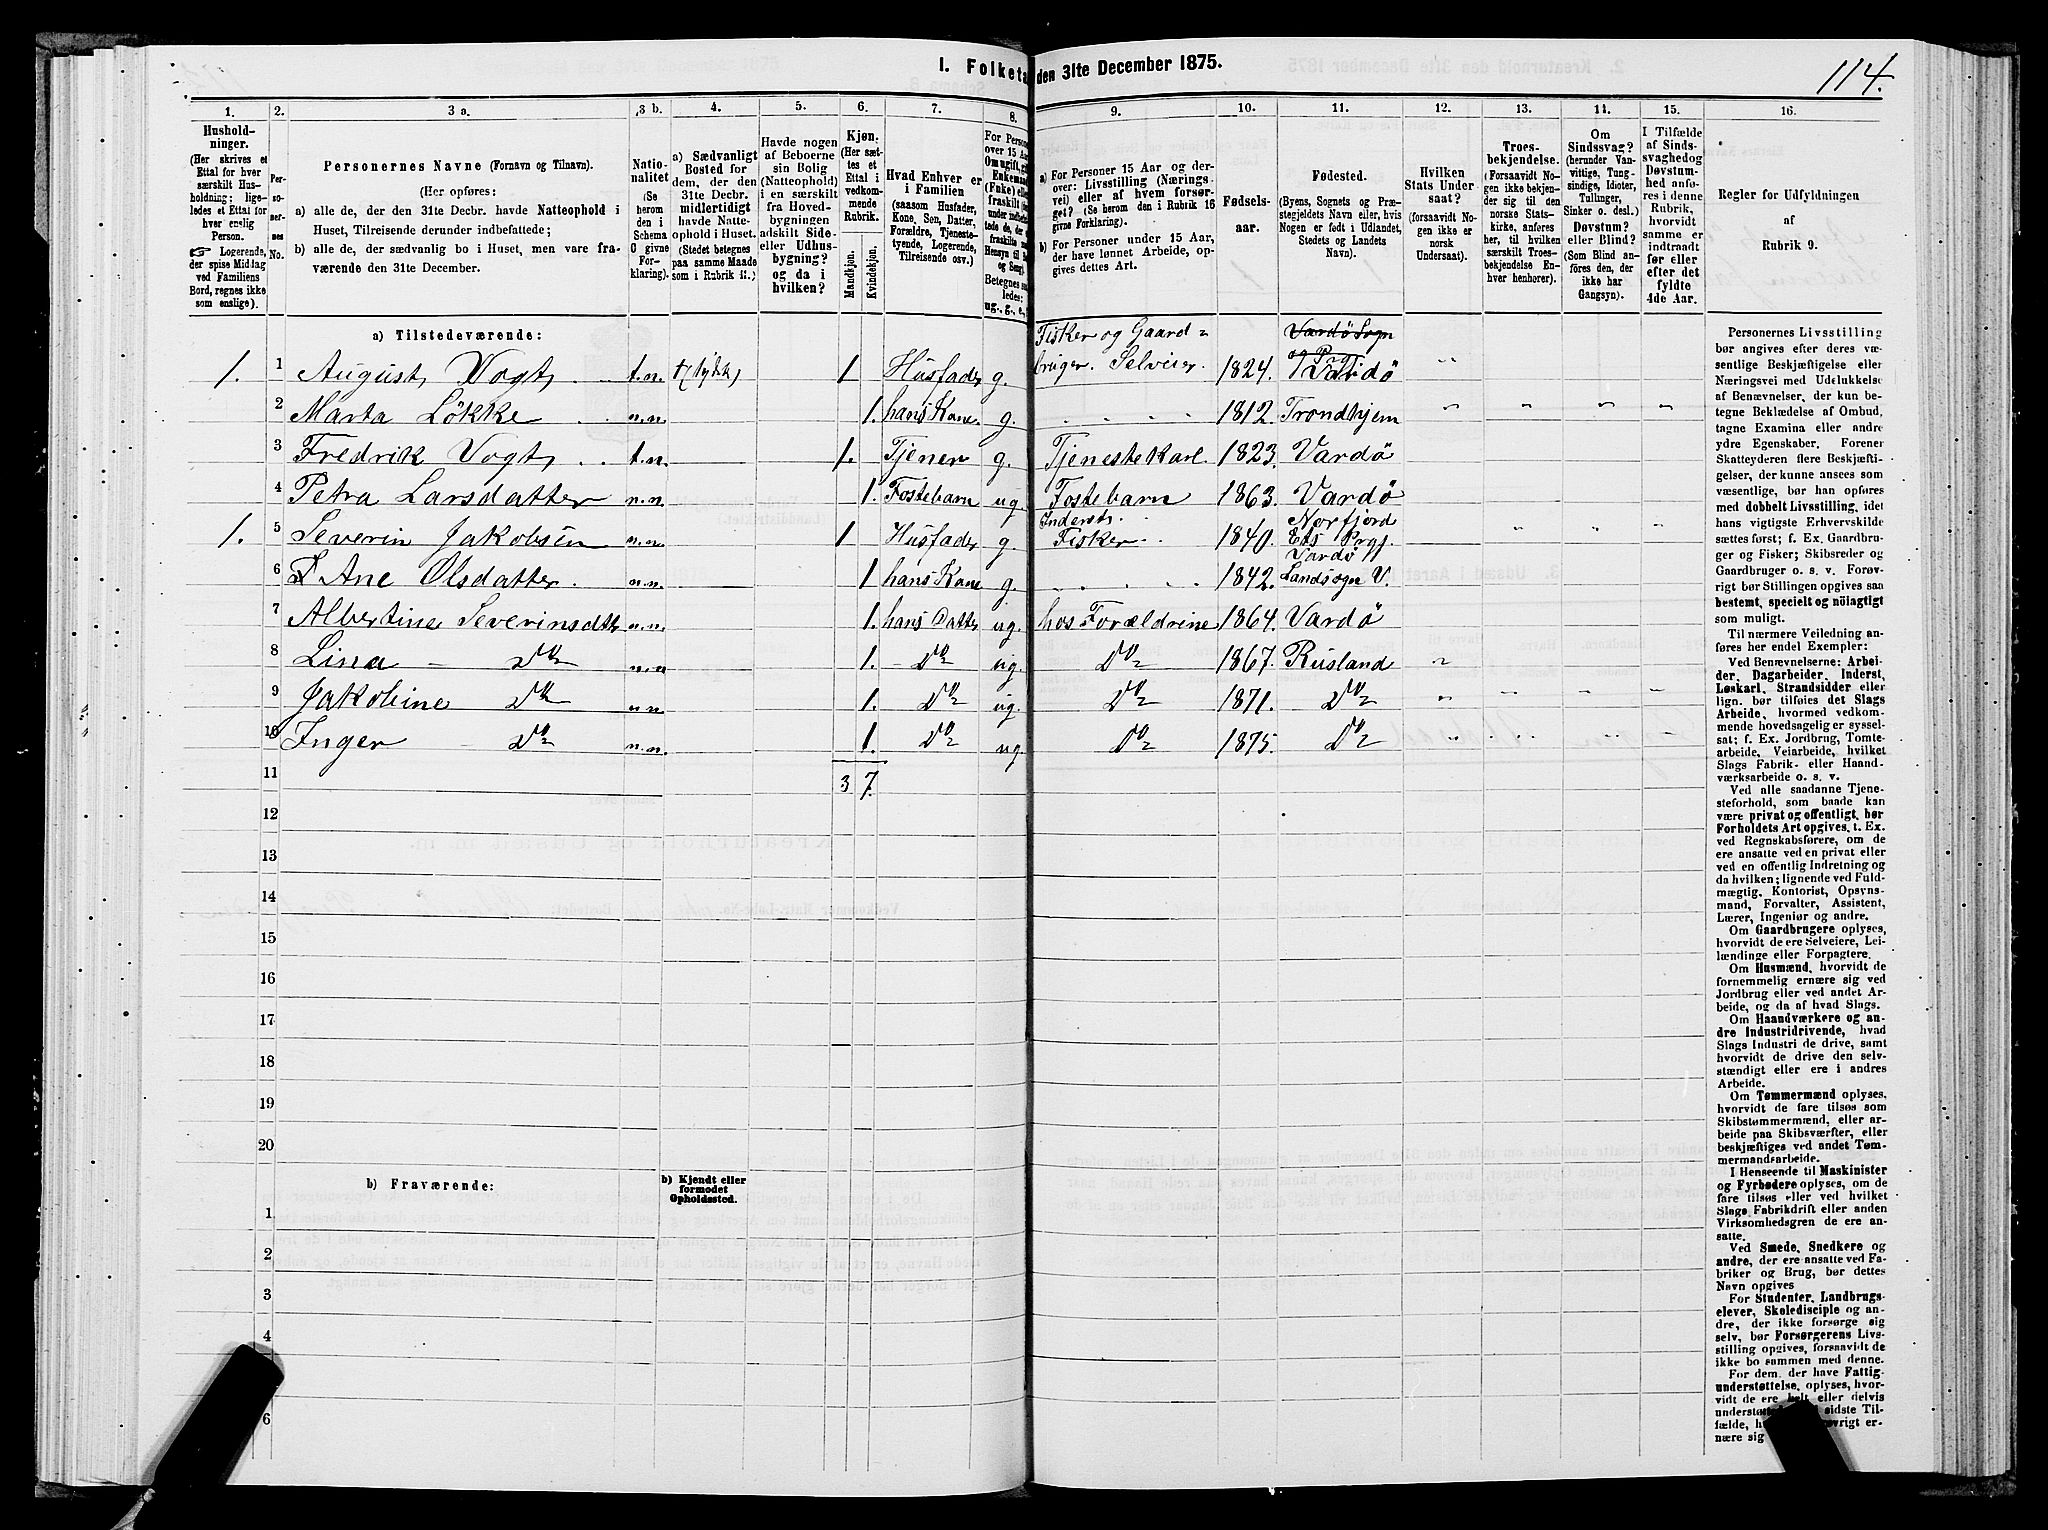 1. Folketa den 31te December 1875.
114.
1.
Hushold-
ninger.
(Her skrives et
Ettal for hver
særskilt Hus-
holdning; lige-
ledes et Ettal for
hver enslig
Person.
☞ Logerende,
der spise Middag
ved Familiens
Bord, regnes ikke
som enslige).
2.
Per-
so-
ner-
nes
No.
3 a.
Personernes Navne (Fornavn og Tilnavn).
(Her opføres:
a) alle de, der den 31te Decbr. havde Natteophold i
Huset, Tilreisende derunder indbefattede;
b) alle de, der sædvanlig bo i Huset, men vare fra-
værende den 31te December.
3 b.
Natio-
nalitet
(Se
herom
den i
Schema
O givne
For-
klaring).
4.
a) Sædvanligt
Bosted for
dem, der den
31te Decbr.
midlertidigt
havde Natte-
ophold i Huset.
(Stedet betegnes
paa samme Maade
som i Rubrik 11.)
5.
Havde nogen
af Beboerne
sin Bolig
(Natteophold)
i en særskilt
fra Hoved-
bygningen
adskilt Side-
eller Udhus-
bygning?
og da i
hvilken?
6.
Kjøn.
(Her sæt-
tes et
Ettal i
vedkom-
mende
Rubrik.
Mandkjøn.
Kvindekjøn.
7.
Hvad Enhver er
i Familien
(saasom Husfader,
Kone, Søn, Datter,
Forældre, Tjeneste-
tyende, Logerende,
Tilreisende osv.)
8.
For Person
over 15 Aar
Om ugift, gi
Enkeman
(Enke) elle
fraskilt
ledes:
ug., g., e.,
9.
a) For Personer 15 Aar og der-
over: Livsstilling (Nærings-
vei) eller af hvem forsør-
get? (Se herom i Rubrik 16
givne Forklaring).
b) For Personer under 15 Aar,
der have lønnet Arbeide, op-
gives dettes Art.
10.
Fødsels-
aar.
11.
Fødested.
(Byens, Sognets og Præ-
stegjeldets Navn eller, hvis
Nogen er født i Udlandet,
Stedets og Landets
Navn).
12.
Hvilken
Stats Under-
saat?
(forsaavidt No-
gen ikke er
norsk
Undersaat).
13.
Troes-
bekjendelse.
(Forsaavidt No-
gen ikke bekjen-
der sig til den
norske Stats-
kirke, anføres
her, til hvilken
særskilt Troes-
bekjendelse En-
hver henhører).
14.
Om
Sindssvag?
(herunder Van-
vittige, Tung-
sindige, Idioter,
Tullinger,
Sinker o. desl.)
Døvstum?
eller Blind?
(Som Blind an-
føres den, der
ikke har
Gangsyn).
15.
I Tilfælde
af Sinds-
svaghed og
Døvstum-
hed anfø-
res i denne
Rubrik,
hvorvidt
samme er
indtraadt
før eller
efter det
fyldte
4de Aar.
16.
Regler for Udfyldningen
af
Rubrik 9.
a) Tilstedeværende:
1. 1 August Vogt t.n. 1 Husfader g. Fisker og Gaard= bruger. Selveier. 1824.
2 Marta Lökke n.n. 1. hans Kone g. 1812. Trondhjem
3 Fredrik Vogt t.n. 1. Tjener g. Tjenestekarl 1823. Vardö
4 Petra Larsdatter n.n. 1. Fostebarn ug. Fostebarn 1863. Vardö
1. 5 Severin Jakobsen n.n. 1 Husfader g. Inderst. Fisker 1840. Norfjord Eds Prgj.
6 Ane Olsdatter. n.n. 1 hans Kone g. 1842. Vardö Landsogn V.
7 Albertine Severinsdtr n.n. 1. hans Datter ug. hos Forældrine 1864. Vardö
8 Lina – Do n.n. 1. – Do ug. Do 1867. Rusland
9 Jakobine Do n.n. 1. Do ug. Do 1871. Do
10 Inger – Do n.n. 1. Do ug. Do 1875. Do
11 3 7.
12
13
14
15
16
17
18
19
20
b) Fraværende:
b) Kjendt eller
formodet
Opholdssted.
1
2
3
4
6
Personernes Livsstilling
bør angives efter deres væ-
sentlige Beskjæftigelse eller
Næringsvei med Udelukkelse
af Benævnelser, der kun be-
tegne Beklædelse af Ombud,
tagne Examina eller andre
ydre Egenskaber. Forener
Skatteyderen flere Beskjæfti-
gelser, der kunne ansees som
væsentlige, bør han opføres
med dobbelt Livsstilling, idet
hans vigtigste Erhvervskilde
sættes først; f. Ex. Gaardbru-
ger og Fisker; Skibsreder og
Gaardbruger o. s. v. Forøv-
rigt bør Stillingen opgives saa
bestemt, specielt og nöiagtigt
som muligt.
Til nærmere Veiledning an-
føres her endel Exempler:
Ved Benævnelserne: Arbei-
der, Dagarbeider, Inderst,
Løskarl, Strandsidder eller
lign. bør tilføies det Slags
Arbeide, hvormed vedkom-
mende hovedsagelig er syssel-
sat; f. Ex. Jordbrug, Tomte-
arbeide, Veiarbeide, hvilket
Slags Fabrik- eller Haand-
værksarbeide o. s. v.
Ved alle saadanne Tjene-
steforhold, som baade kan
være privat og offentligt, bør
Forholdets Art opgives, t. Ex.
ved Regnskabsførere, om de
ere ansatte ved en privat eller
ved en offentlig Indretning og
da hvilken; lignende ved Fuld-
mægtig, Kontorist, Opsyns-
mand, Forvalter, Assistent,
Lærer, Ingeniør og andre.
Om Gaardbrugere oplyses,
hvorvidt de ere Selveiere, Lei-
lændinge eller Forpagtere.
Om Husmænd, hvorvidt de
fornemmelig ernære sig ved
Jordbrug eller ved andet Ar-
beide, og da af hvad Slags.
Om Haandværkere og an-
dre Industridrivende, hvad
Slags Industri de drive, samt
hvorvidt de drive den selv-
stændigt eller ere i andres
Arbeide.
Om Tømmermænd oplyses,
hvorvidt de fare tilsøs som
Skibstømmermænd, eller ar-
beide paa Skibsværfter, eller
beskjæftiges ved andet Tøm-
mermandsarbeide.
I Henseende til Maskinister
og Fyrbødere oplyses, om de
fare tilsøs eller ved hvilket
Slags Fabrikdrift eller anden
Virksomhedsgren de ere an-
satte.
Ved Smede, Snedkere og
andre, der ere ansatte ved Fa-
briker og Brug, bør dettes
Navn opgives
For Studenter, Landbrugs-
elever, Skoledisciple og an-
dre, der ikke forsørge sig
selv, bør Forsørgerens Livs-
stilling opgives, forsaavidt de
ikke bo sammen med denne.
For dem, der have Fattig-
understøttelse, oplyses, hvor-
vidt de ere helt eller delvis